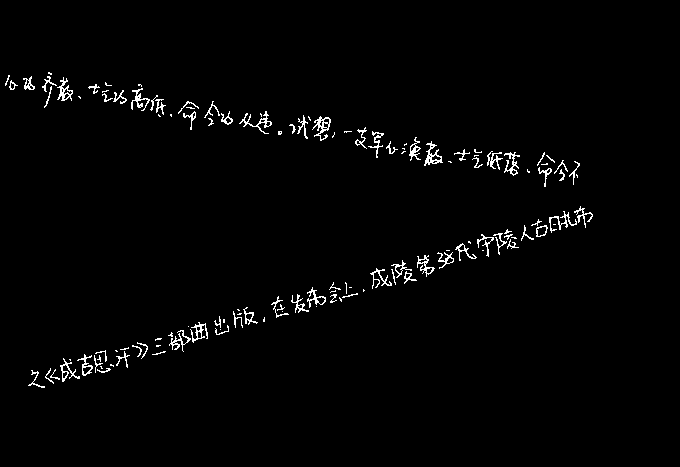 心的齐散、士气的高低、命令的从违。试想,一支军心涣散、士气低落、命令不
之《成吉思汗》三部曲出版,在发布会上,成陵第38代守陵人古日扎布